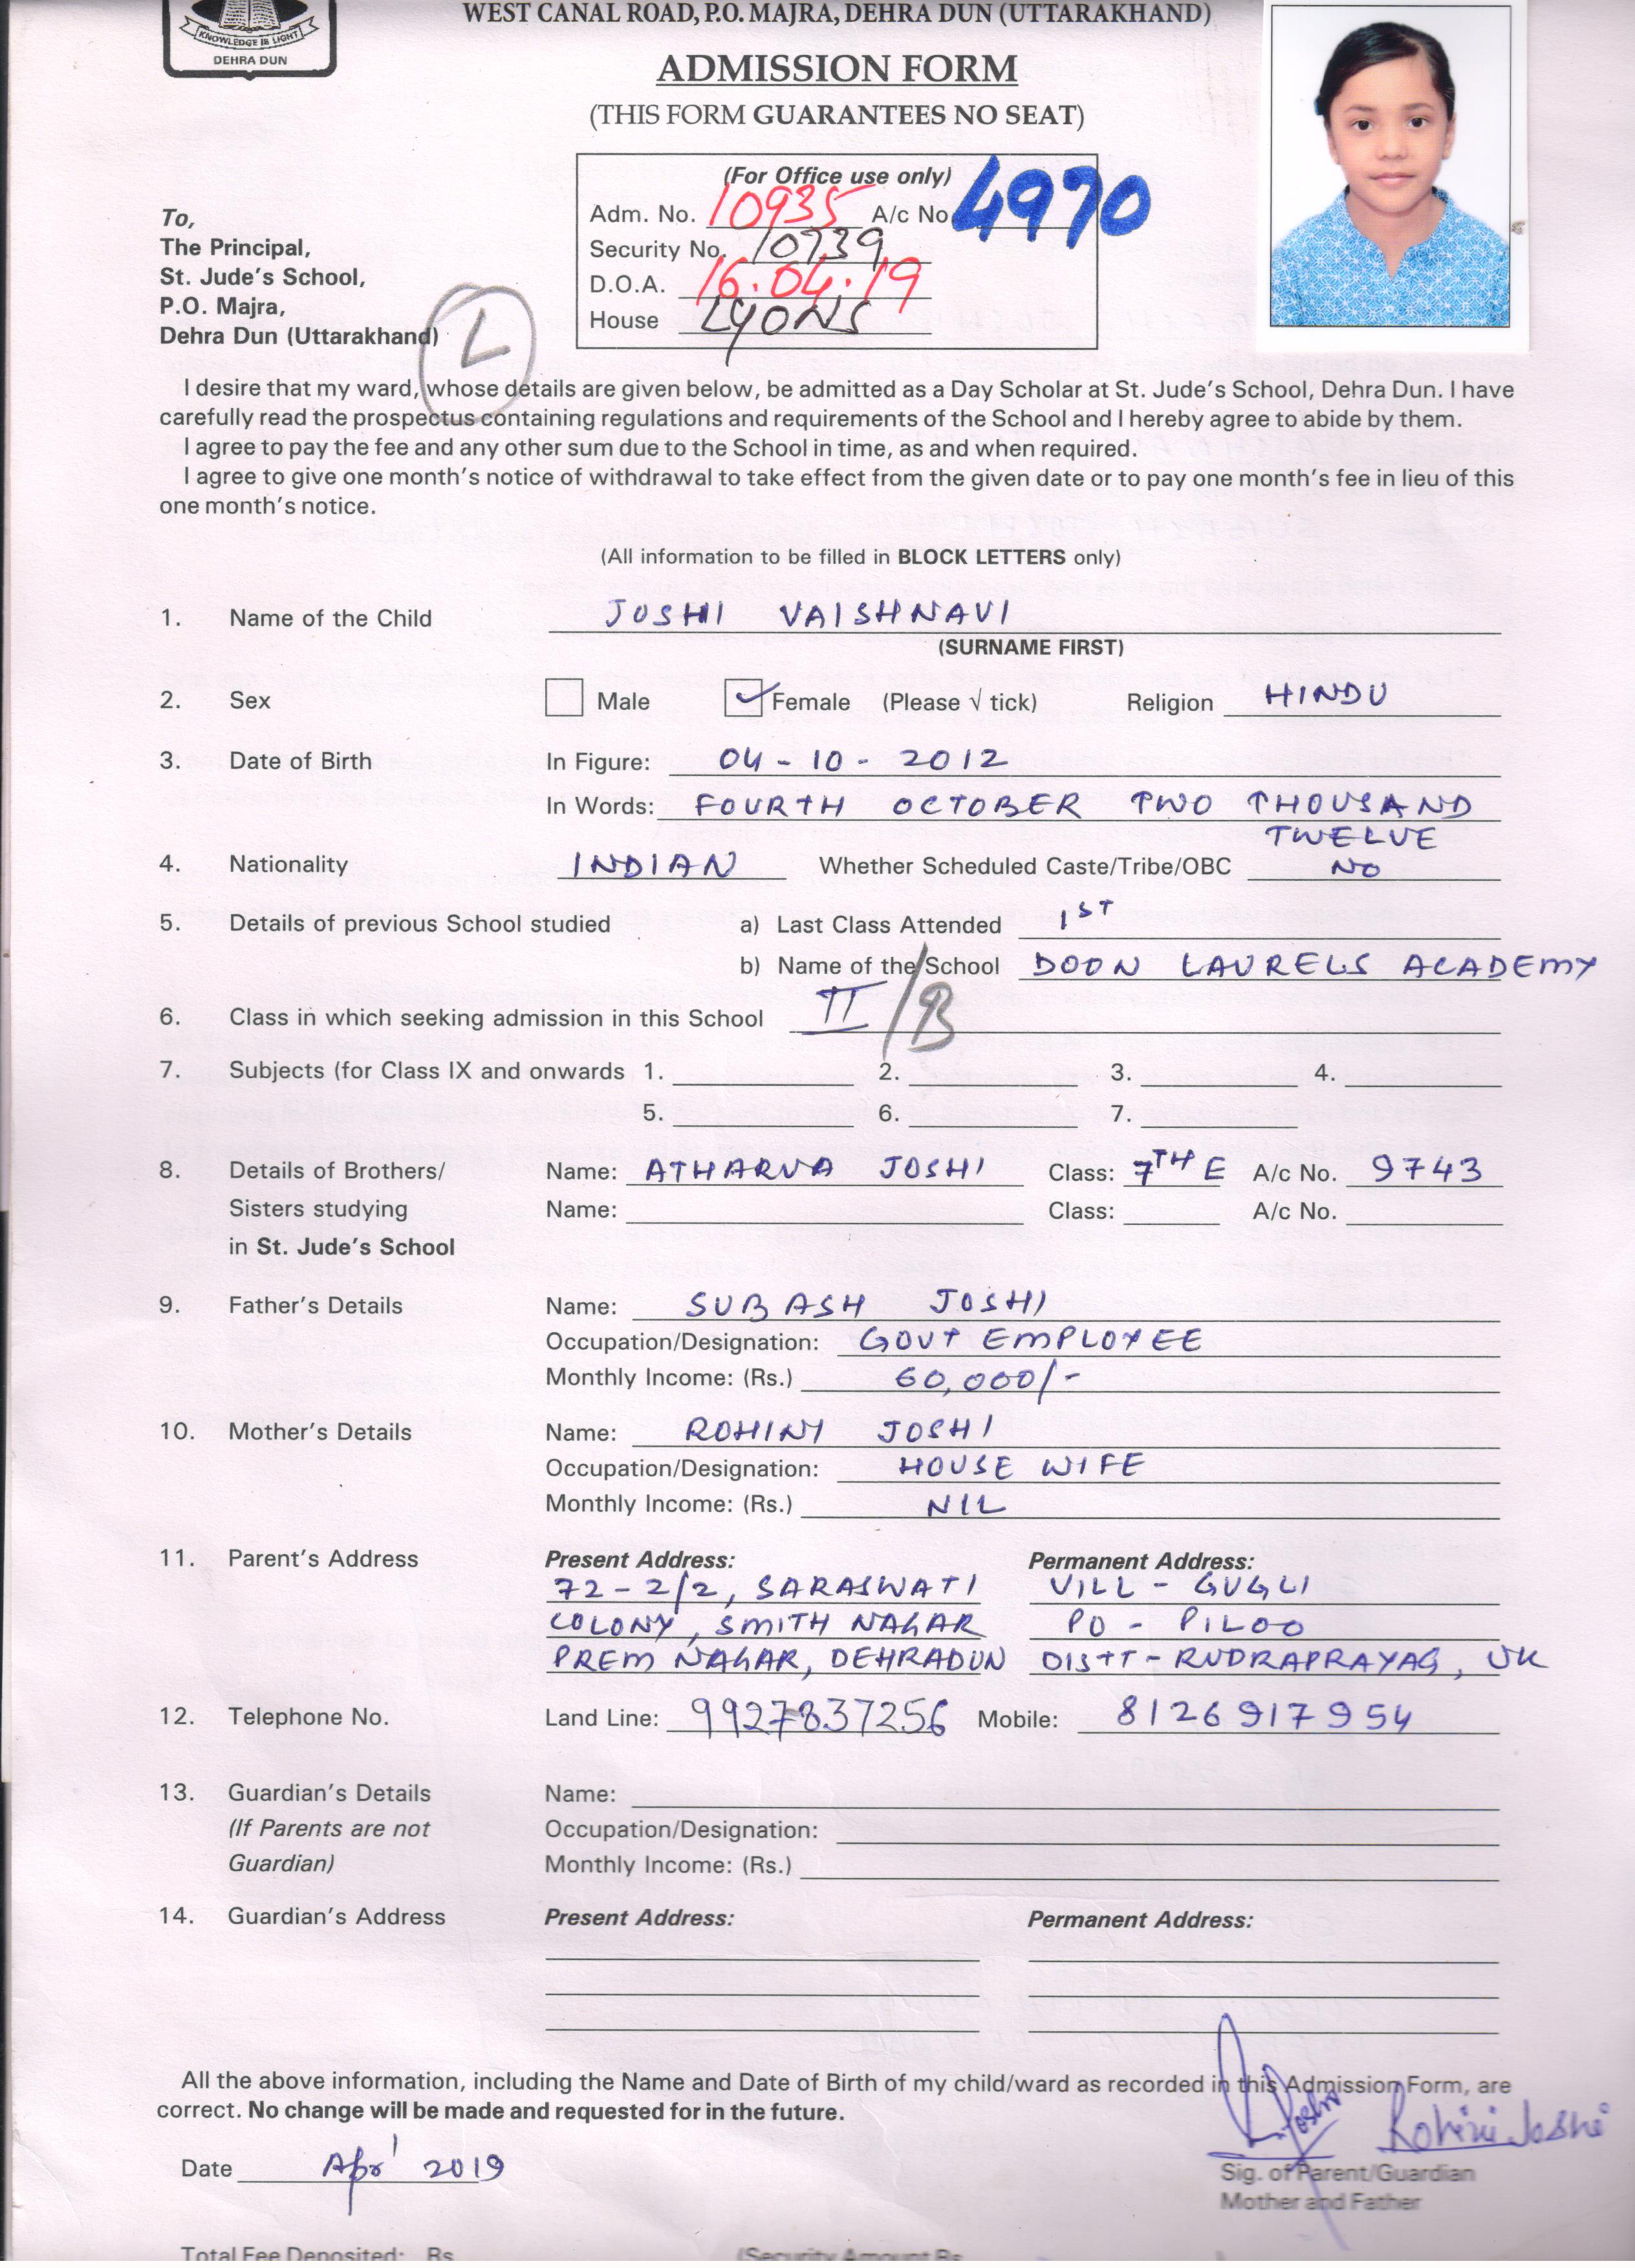 KNOWLEDGE IS LIGHT
DEHRA DUN
WEST CANAL ROAD, P.O. MAJRA, DEHRA DUN (UTTARAKHAND)
ADMISSION FORM
(THIS FORM GUARANTEES NO SEAT)
(For Office use only)
Adm. No. 10935 A/c No 4970
Security No. 10739
D.O.A. 16.04.19
House LYONS
To,
The Principal,
St. Jude's School,
P.O. Majra,
Dehra Dun (Uttarakhand)
L
I desire that my ward, whose details are given below, be admitted as a Day Scholar at St. Jude's School, Dehra Dun. I have
carefully read the prospectus containing regulations and requirements of the School and I hereby agree to abide by them.
I agree to pay the fee and any other sum due to the School in time, as and when required.
I agree to give one month's notice of withdrawal to take effect from the given date or to pay one month's fee in lieu of this
one month's notice.
(All information to be filled in BLOCK LETTERS only)
1. Name of the Child JOSHI VAISHNAVI
(SURNAME FIRST)
2. Sex Male ✓ Female (Please √ tick) Religion HINDU
3. Date of Birth In Figure: 04-10-2012
In Words: FOURTH OCTOBER TWO THOUSAND
TWELVE
4. Nationality INDIAN Whether Scheduled Caste/Tribe/OBC NO
5. Details of previous School studied a) Last Class Attended 1ST
b) Name of the School DOON LAURELS ACADEMY
6. Class in which seeking admission in this School II/B
7. Subjects (for Class IX and onwards 1. 2. 3. 4.
5. 6. 7.
8. Details of Brothers/ Name: ATHARVA JOSHI Class: 7TH E A/c No. 9743
Sisters studying Name: Class: A/c No.
in St. Jude's School
9. Father's Details Name: SUBASH JOSHI
Occupation/Designation: GOVT EMPLOYEE
Monthly Income: (Rs.) 60,000/-
10. Mother's Details Name: ROHINI JOSHI
Occupation/Designation: HOUSE WIFE
Monthly Income: (Rs.) NIL
11. Parent's Address Present Address: Permanent Address:
72-2/2, SARASWATI VILL - GUGLI
COLONY, SMITH NAGAR PO - PILOO
PREM NAGAR, DEHRADUN DISTT - RUDRAPRAYAG, UK
12. Telephone No. Land Line: 9927837256 Mobile: 8126917954
13. Guardian's Details Name:
(If Parents are not Occupation/Designation:
Guardian) Monthly Income: (Rs.)
14. Guardian's Address Present Address: Permanent Address:
All the above information, including the Name and Date of Birth of my child/ward as recorded in this Admission Form, are
correct. No change will be made and requested for in the future.
Joshi Rohini Joshi
Date Apr' 2019
Sig. of Parent/Guardian
Mother and Father
Total Fee Deposited: Rs. (Security Amount Rs.